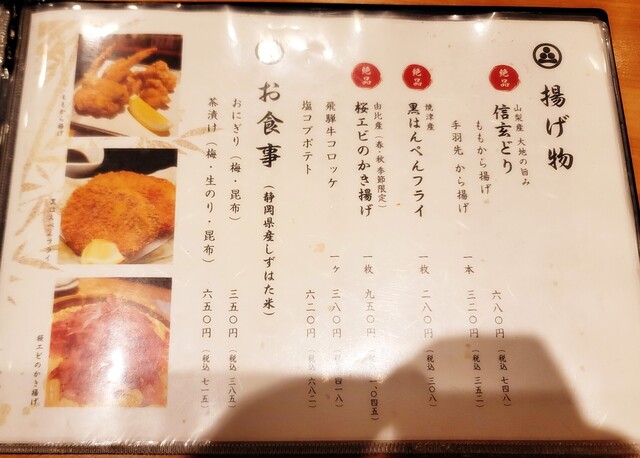 揚げ物
山梨産 大地の旨み
絶品
信玄どり
ももから揚げ 六八〇円(税込 七四八)
手羽先 から揚げ 一本 三二〇円(税込 三五二)
焼津産
絶品
黒はんぺんフライ 一枚 二八〇円(税込 三〇八)
由比産(春・秋 季節限定)
絶品
桜エビのかき揚げ 一枚 九五〇円(税込 一、〇四五)
飛騨牛コロッケ 一ヶ 三八〇円(税込 四一八)
塩コブポテト 六二〇円(税込 六八二)
お食事(静岡県産しずはた米)
おにぎり(梅・昆布) 三五〇円(税込 三八五)
茶漬け(梅・生のり・昆布) 六五〇円(税込 七一五)
ももから揚げ
黒はんぺんフライ
桜エビのかき揚げ